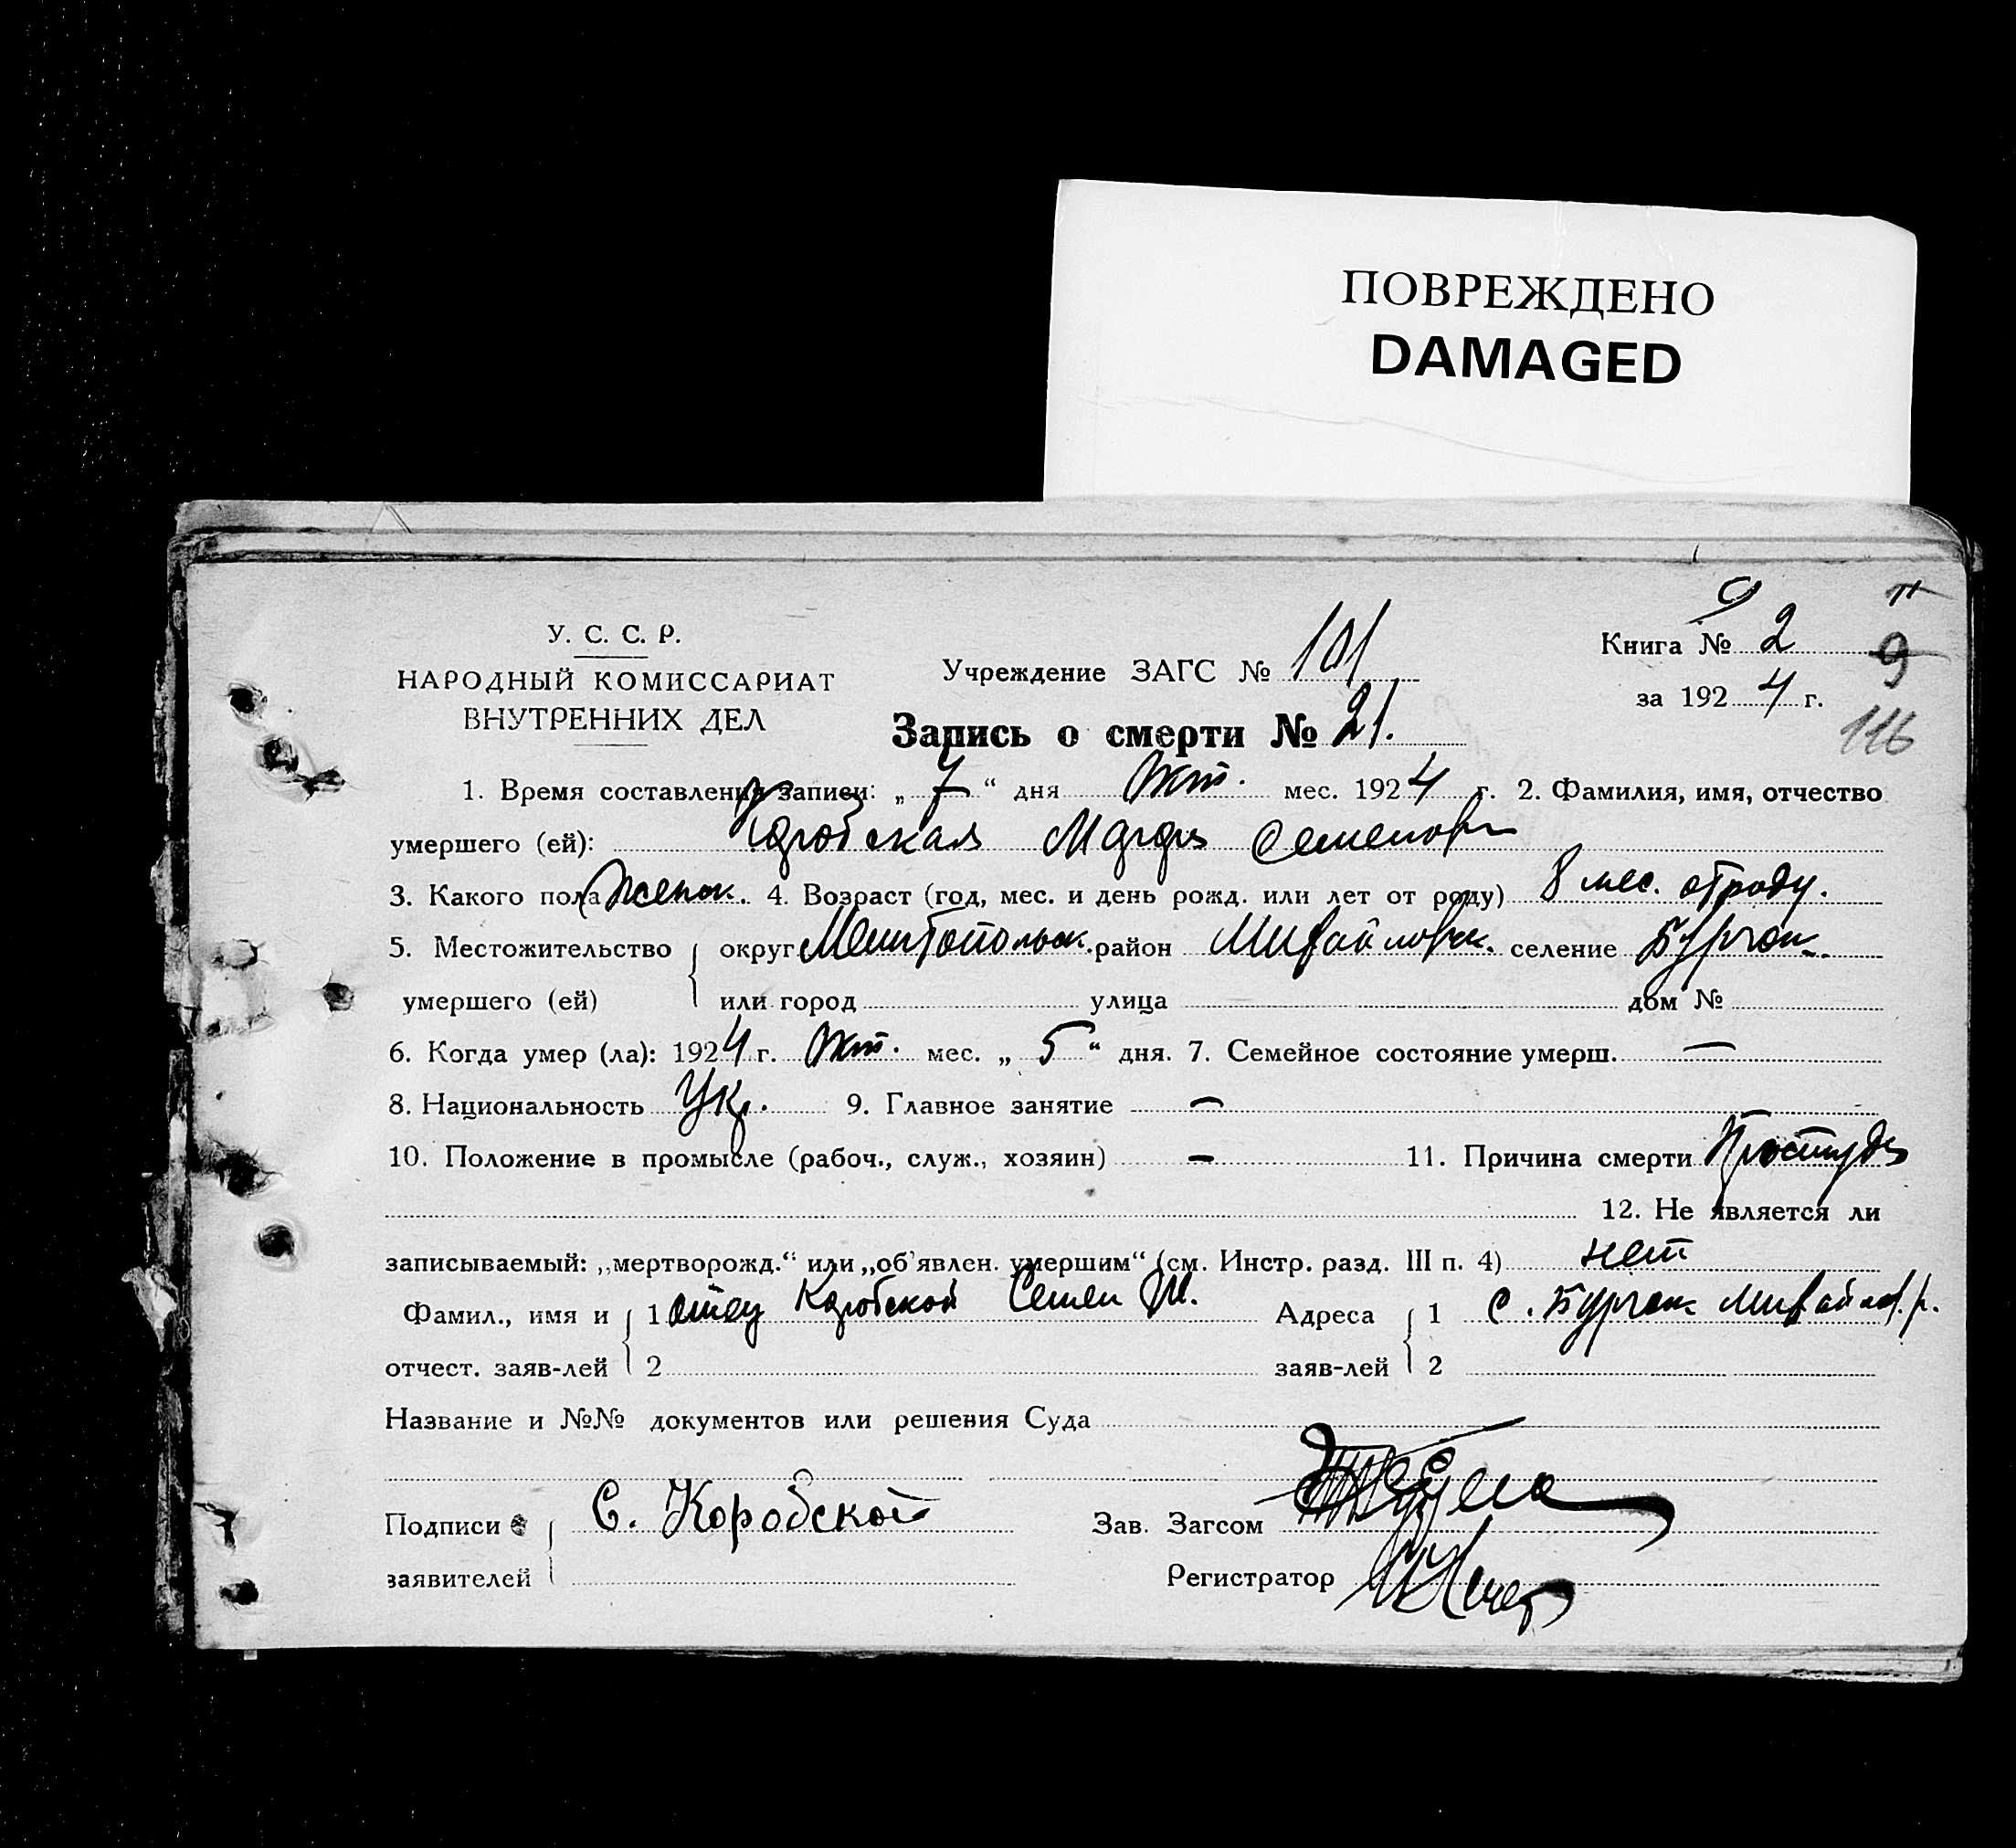 ПОВРЕЖДЕНО
DAMAGED
У. С. С. Р.
НАРОДНЫЙ КОМИССАРИАТ
ВНУТРЕННИХ ДЕЛ
Учреждение ЗАГС № 101
Запись о смерти № 21.
Книга № 2
за 1924 г.
9
116
1. Время составления записи: „7“ дня Окт. мес. 1924 г. 2. Фамилия, имя, отчество
умершего (ей): Коробская Марфа Семенов
3. Какого пола женск. 4. Возраст (год, мес. и день рожд. или лет от роду) 8 мес. от роду.
5. Местожительство округ Мелитопольск. район Михайловск. селение Бурчак
умершего (ей) или город улица дом №
6. Когда умер (ла): 1924 г. Окт. мес. „5“ дня. 7. Семейное состояние умерш. —
8. Национальность Укр. 9. Главное занятие —
10. Положение в промысле (рабоч., служ., хозяин) — 11. Причина смерти Простуда
12. Не является ли
записываемый: „мертворожд.“ или „об'явлен. умершим“ (см. Инстр. разд. III п. 4) нет
Фамил., имя и 1 отец Коробской Семен Адреса 1 с. Бурчак Михайлов. р.
отчест. заяв-лей 2 заяв-лей 2
Название и №№ документов или решения Суда
Подписи С. Коробской Зав. Загсом
заявителей Регистратор